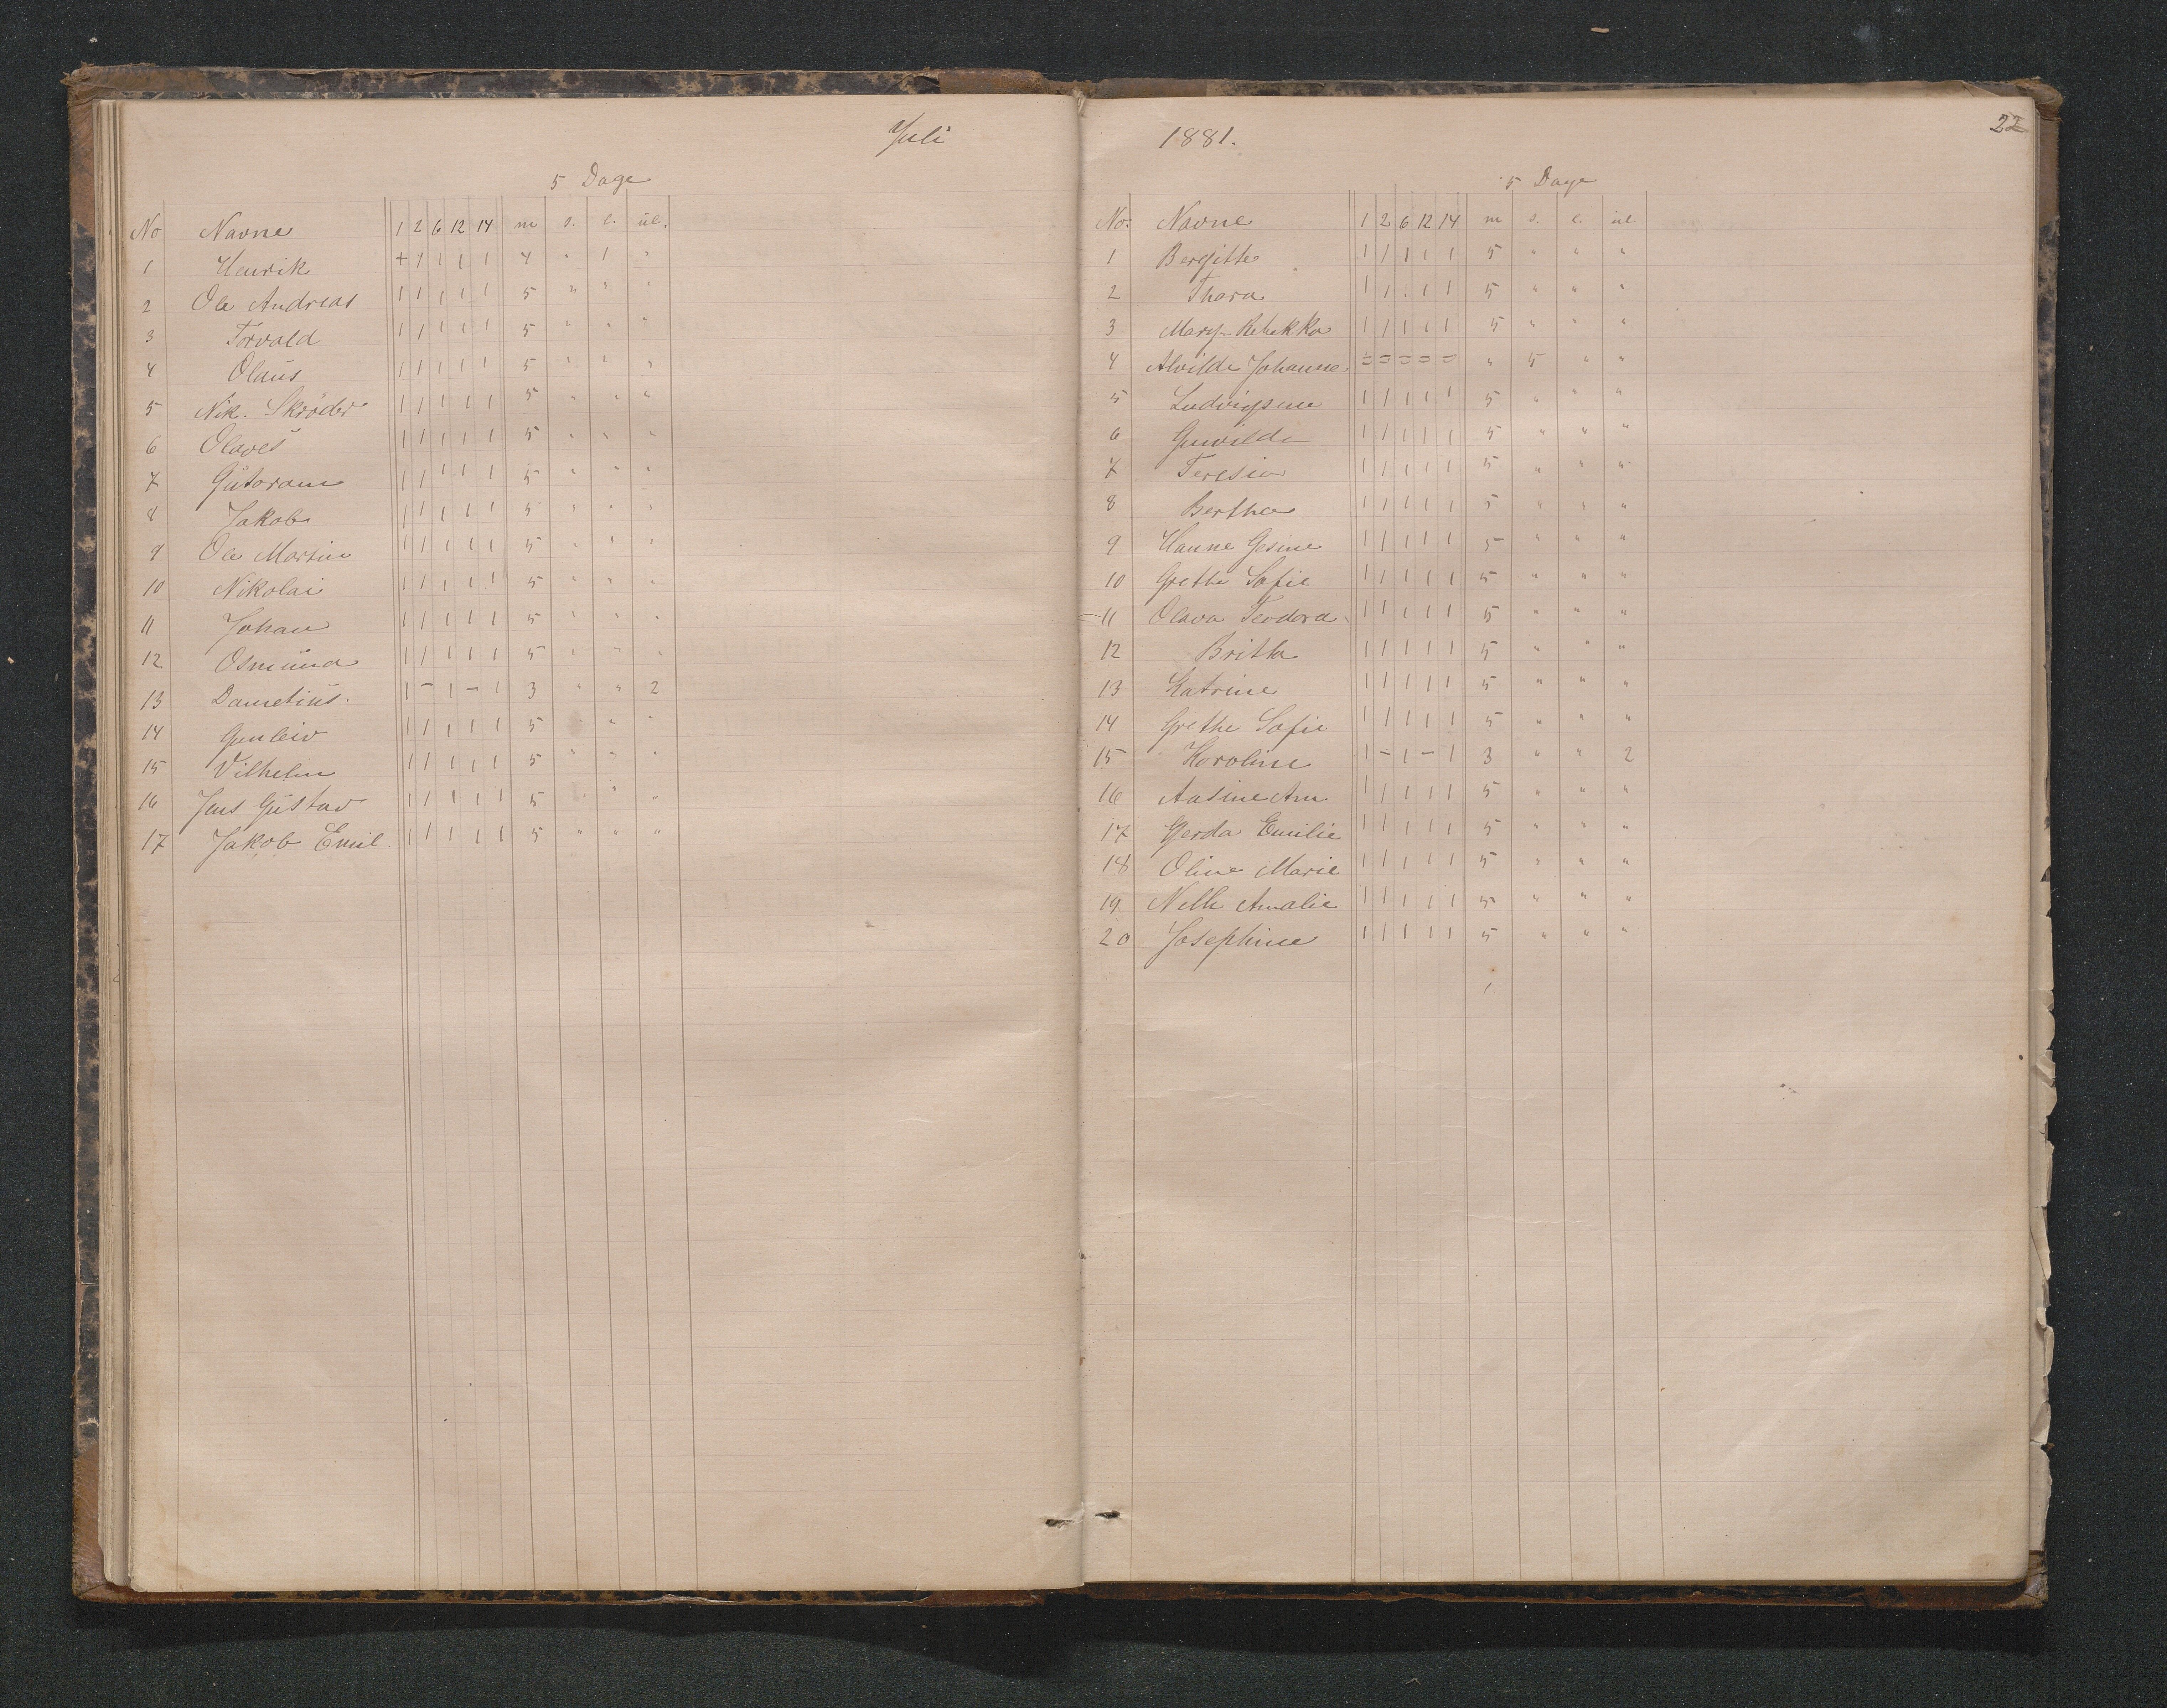 Juli
5 Dage
No Navne 1 2 6 12 14 m s. l. ül.
1 Henrik + 1 1 1 1 4 " 1 "
2 Ole Andreas 1 1 1 1 1 5 " " "
3 Torvald 1 1 1 1 1 5 " " "
4 Olaüs 1 1 1 1 1 5 " " "
5 Nik. Skrøder 1 1 1 1 1 5 " " "
6 Olaves 1 1 1 1 1 5 " " "
7 Gütoram 1 1 1 1 1 5 " " "
8 Jakob 1 1 1 1 1 5 " " "
9 Ole Martin 1 1 1 1 1 5 " " "
10 Nikolai 1 1 1 1 1 5 " " "
11 Johan 1 1 1 1 1 5 " " "
12 Osmünd 1 1 1 1 1 5 " " "
13 Dametiüs. 1 - 1 - 1 3 " " 2
14 Gunleiv 1 1 1 1 1 5 " "
15 Vilhelm 1 1 1 1 1 5 " " "
16 Jens Güstav 1 1 1 1 1 5 " " "
17 Jakob Emil. 1 1 1 1 1 5 " " "
1881.
22
5 Dage
No. Navne 1 2 6 12 14 m s. l. ül
1 Bergitte 1 1 1 1 1 5 " " "
2 Thora 1 1 1 1 1 5 " " "
3 Mary Rebekka 1 1 1 1 1 5 " " "
4 Alvilde Johanne = = = = = " 5 " "
5 Ludvigsine 1 1 1 1 1 5 " " "
6 Gunvilde 1 1 1 1 1 5 " " "
7 Teresia 1 1 1 1 1 5 " " "
8 Bertha 1 1 1 1 1 5 " " "
9 Hanne Gesine 1 1 1 1 1 5 " " "
10 Grethe Sofie 1 1 1 1 1 5 " " "
11 Olava Teodora. 1 1 1 1 1 5 " " "
12 Britha 1 1 1 1 1 5 " " "
13 Katrine 1 1 1 1 1 5 " " "
14 Grethe Sofie 1 1 1 1 1 5 " " "
15 Karoline 1 - 1 - 1 3 " " 2
16 Aasine Am. 1 1 1 1 1 5 " " "
17 Gerda Emilie 1 1 1 1 1 5 " " "
18 Oline Marie 1 1 1 1 1 5 " " "
19. Nelle Amalie 1 1 1 1 1 5 " " "
20 Josephine 1 1 1 1 1 5 " " "